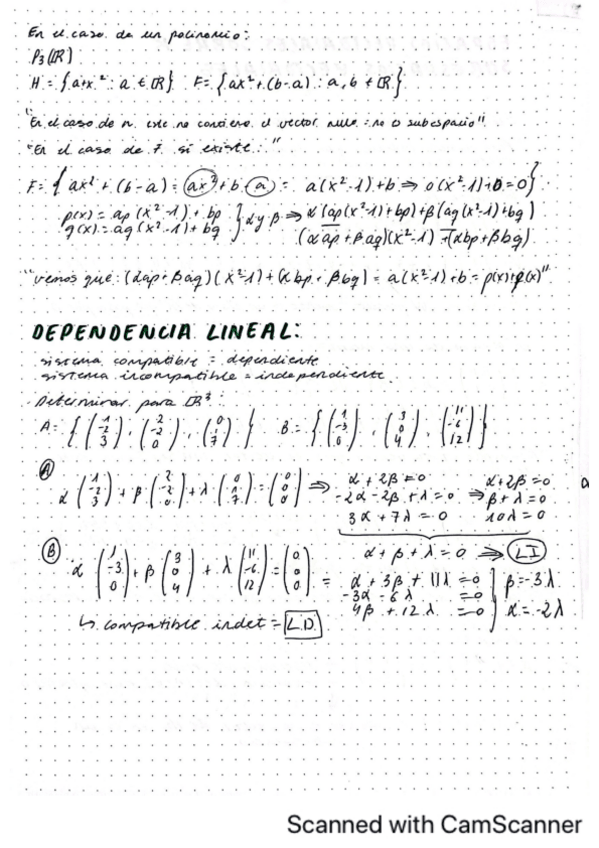 En el caso de un polinomio:
P3(ℝ)
H = {a+x² : a ∈ ℝ} F = {ax² + (b-a) : a, b ∈ ℝ}
"En el caso de n, este no contiene el vector nulo = no es subespacio"
"En el caso de F si existe:"
F = {ax² + (b-a) = ax² + b - a = a(x²-1)+b ⇒ 0(x²-1)+0=0}
p(x) = ap (x²-1) + bp } α y β ⇒ α(ap(x²-1)+bp)+β(ag(x²-1)+bg)
g(x) = ag (x²-1) + bg (αap + βag)(x²-1) + (αbp+βbg)
"vemos que: (αap+βag)(x²-1)+(αbp+βbg) = a(x²-1)+b = p(x)+g(x)"
DEPENDENCIA LINEAL:
sistema compatible = dependiente
sistema incompatible = independiente
Determinar para ℝ³:
A = {(1 -2 3), (2 -2 0), (0 1 7)} B = {(1 -3 0), (3 0 4), (11 -6 12)}
Ⓐ α(1 -2 3) + β(2 -2 0) + λ(0 1 7) = (0 0 0) ⇒ α + 2β = 0 α+2β=0
-2α - 2β + λ = 0 ⇒ β + λ = 0
3α + 7λ = 0 10λ = 0
α + β + λ = 0 ⇒ LI
Ⓑ α(1 -3 0) + β(3 0 4) + λ(11 -6 12) = (0 0 0) = α + 3β + 11λ = 0 } β=-3λ
-3α - 6λ = 0
4β + 12λ = 0 } α = -2λ
↳ compatible indet = L.D.
Scanned with CamScanner